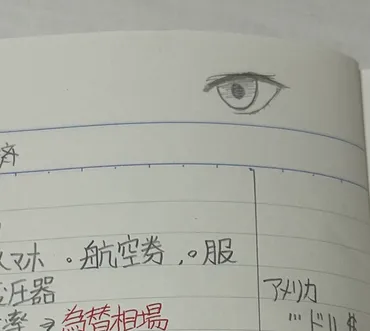 済
スマホ 。航空券 、。服
変圧器
アメリカ
率→為替相場
ドル